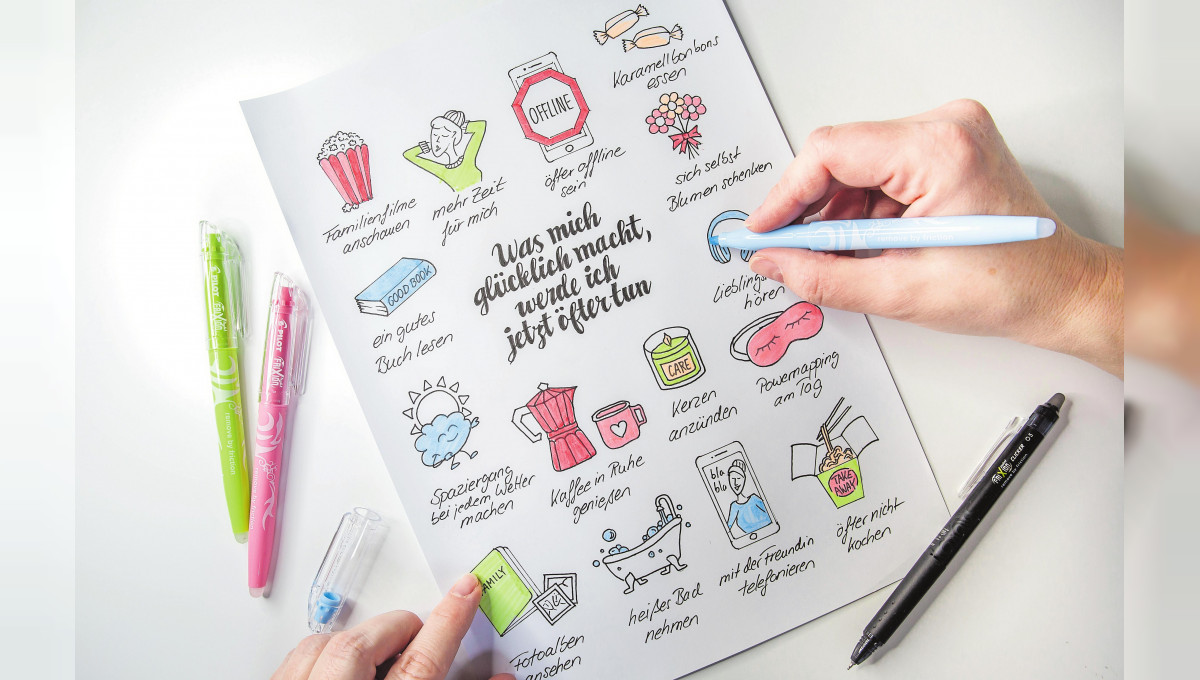 Karamellbonbons
essen
OFFLINE
öfter offline
sein
mehr Zeit
für mich
Familienfilme
anschauen
sich selbst
Blumen schenken
Was mich
glücklich macht,
werde ich
jetzt öfter tun
GOOD BOOK
ein gutes
Buch lesen
hören
CARE
Kerzen
anzünden
Powernapping
am Tag
Spaziergang
bei jedem Wetter
machen
Kaffee in Ruhe
genießen
bla
bla
mit der Freundin
telefonieren
TAKE
AWAY
öfter nicht
kochen
heißes Bad
nehmen
FAMILY
Fotoalben
ansehen
PILOT
FriXion
remove by friction
PILOT
FriXion
FriXion CLICKER 05
remove by friction